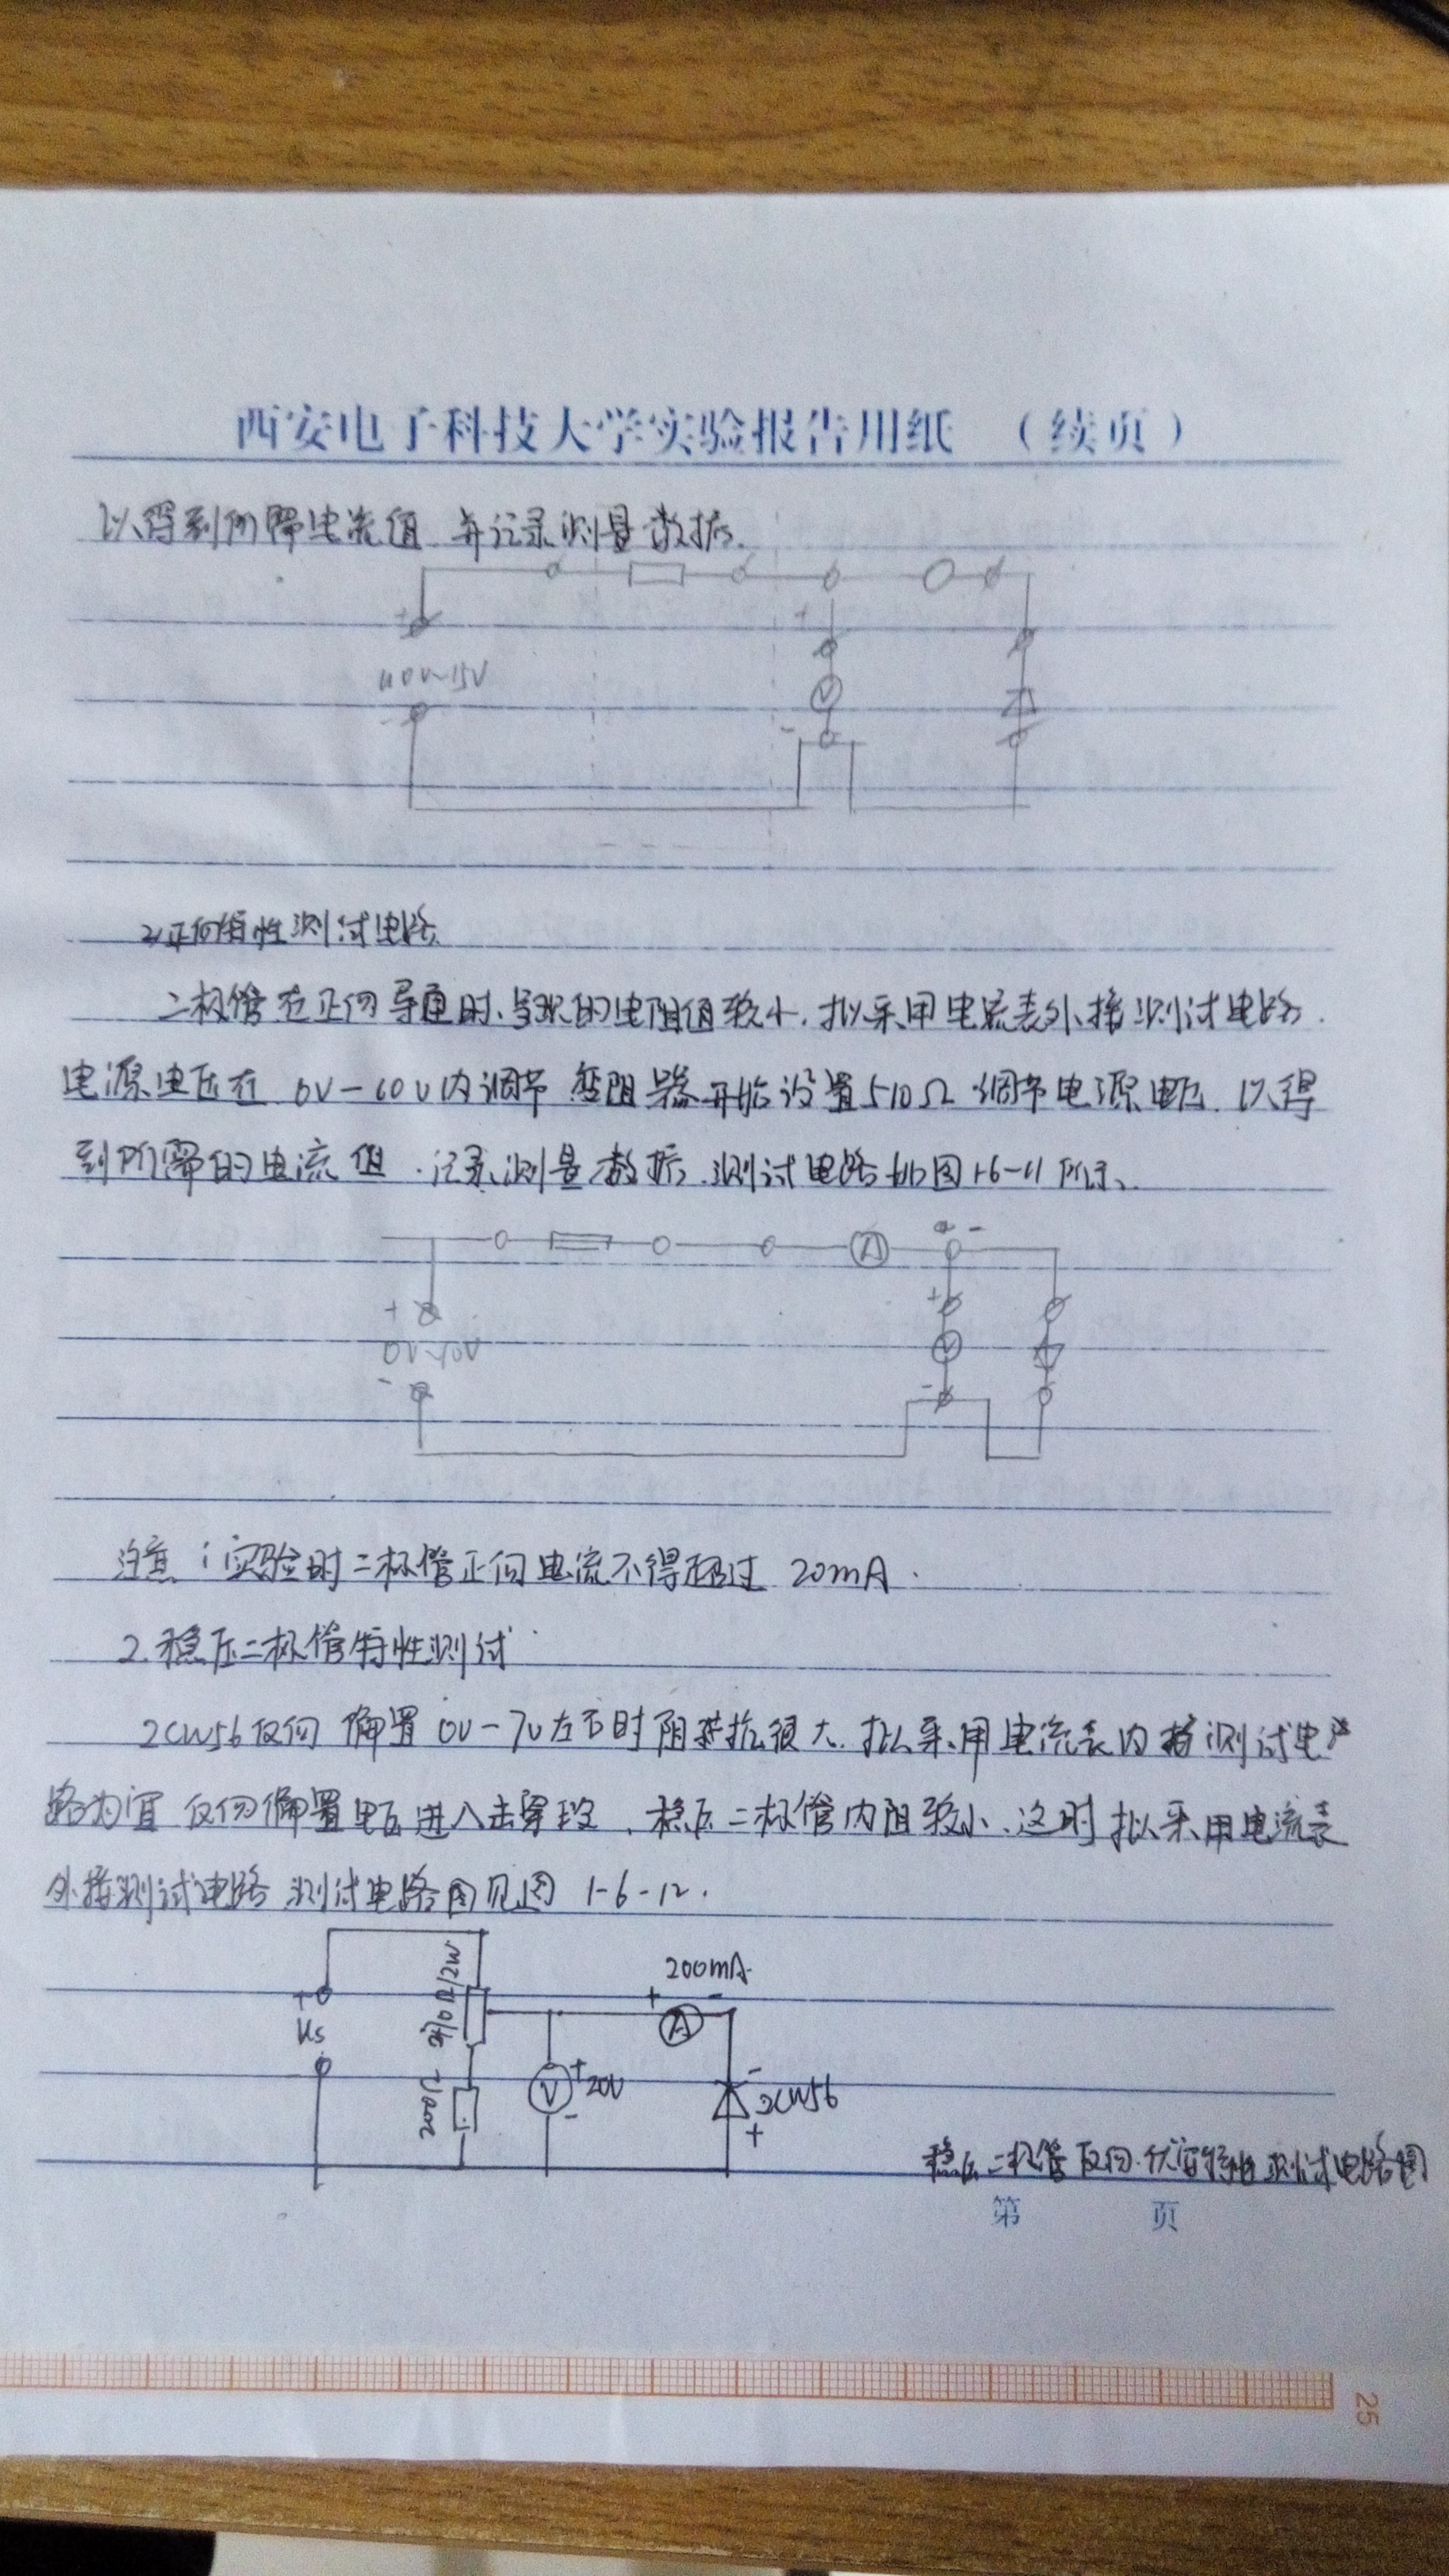 西安电子科技大学实验报告用纸 （续页）
以得到所需电流值 并记录测量数据.
+
0V~15V
-
+
V
-
2) 正向特性测试电路
二极管在正向导通时、呈现的电阻值较小. 拟采用电流表外接测试电路.
电源电压在 0V-10V内调节 变阻器开始设置510Ω 调节电源电压. 以得
到所需的电流值 . 记录测量数据. 测试电路如图1-6-11所示、
A
-
+
+
0V~10V
V
-
-
注意:实验时二极管正向电流不得超过 20mA.
2. 稳压二极管特性测试
2CW56反向 偏置 0V-7V左右时阻抗很大. 拟采用电流表内接测试电
路为宜 反向偏置电压进入击穿段、稳压二极管内阻较小、这时拟采用电流表
外接测试电路 测试电路图见图 1-6-12.
200mA
470Ω/2W
+
-
+
Us
A
-
200Ω
V
+
20V
-
2CW56
+
稳压二极管反向伏安特性测试电路图
第 页
25